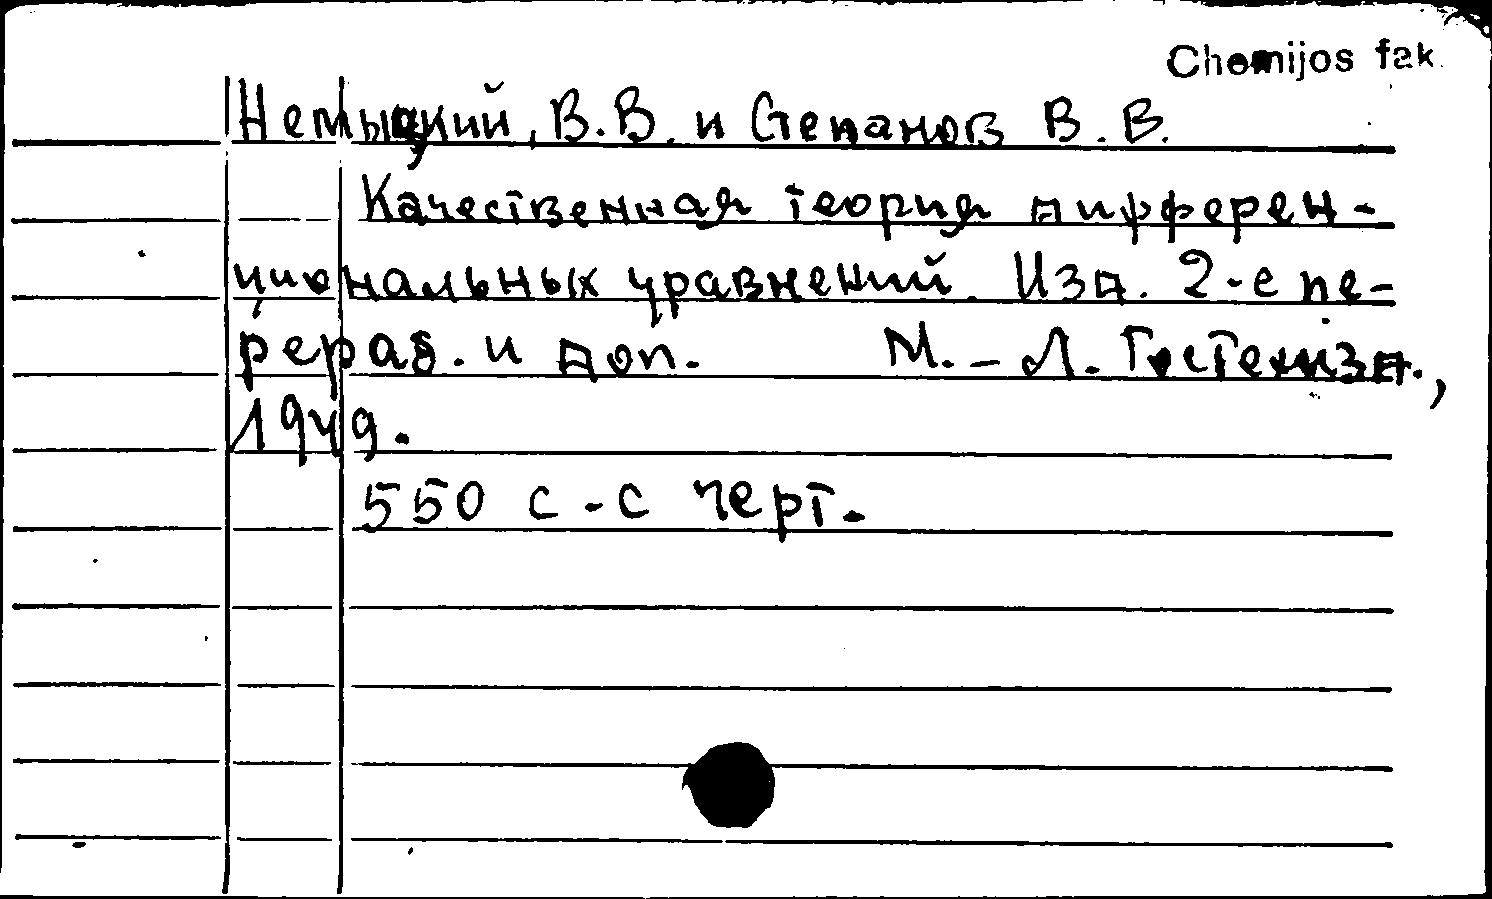 Chemijos fak.
Немыцкий, В.В. и Степанов В.В.
Качественная теория дифферен-
циональных уравнений. Изд. 2-е пе-
рераб. и доп. М.-Л. Гостехизд.,
1949.
550 с.-с черт.